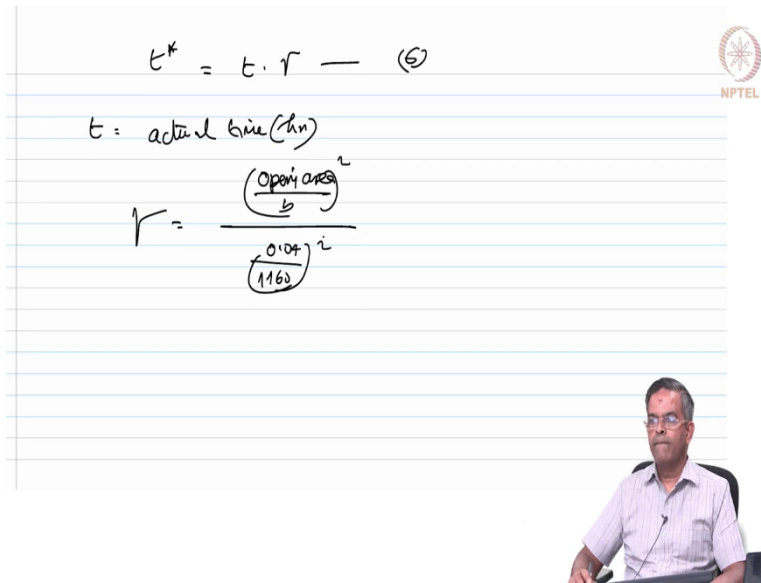 t* = t . Γ — (6)
NPTEL
t = actual time (hr)
Γ = (opening area / b)² / (0.04 / 1160)²